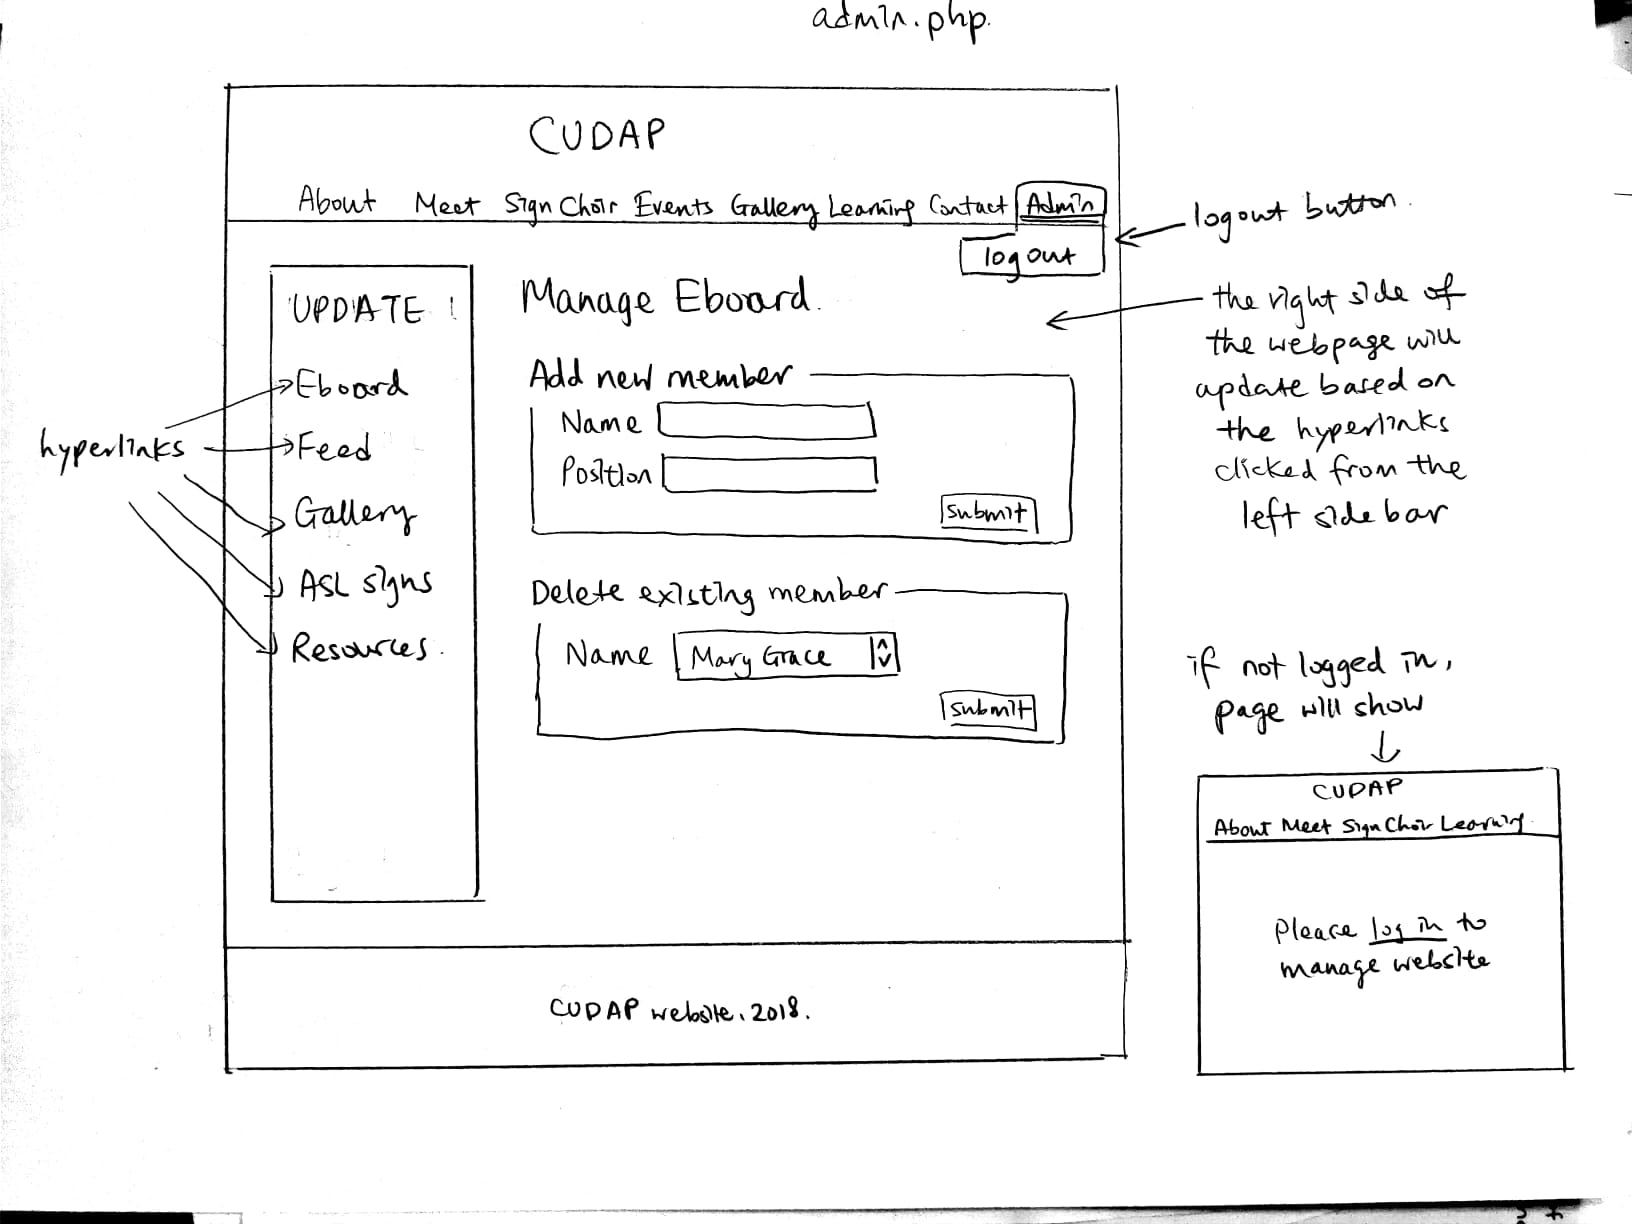 admin.php.
CUDAP
About Meet Sign Choir Events Gallery Learning Contact Admin
logout
logout button.
UPDATE
Eboard
Feed
Gallery
ASL signs
Resources.
hyperlinks
Manage Eboard.
Add new member
Name
Position
submit
Delete existing member
Name Mary Grace
submit
the right side of
the webpage will
update based on
the hyperlinks
clicked from the
left side bar
if not logged in,
page will show
CUDAP
About Meet Sign Choir Learning
Please log in to
manage website
CUDAP website, 2018.